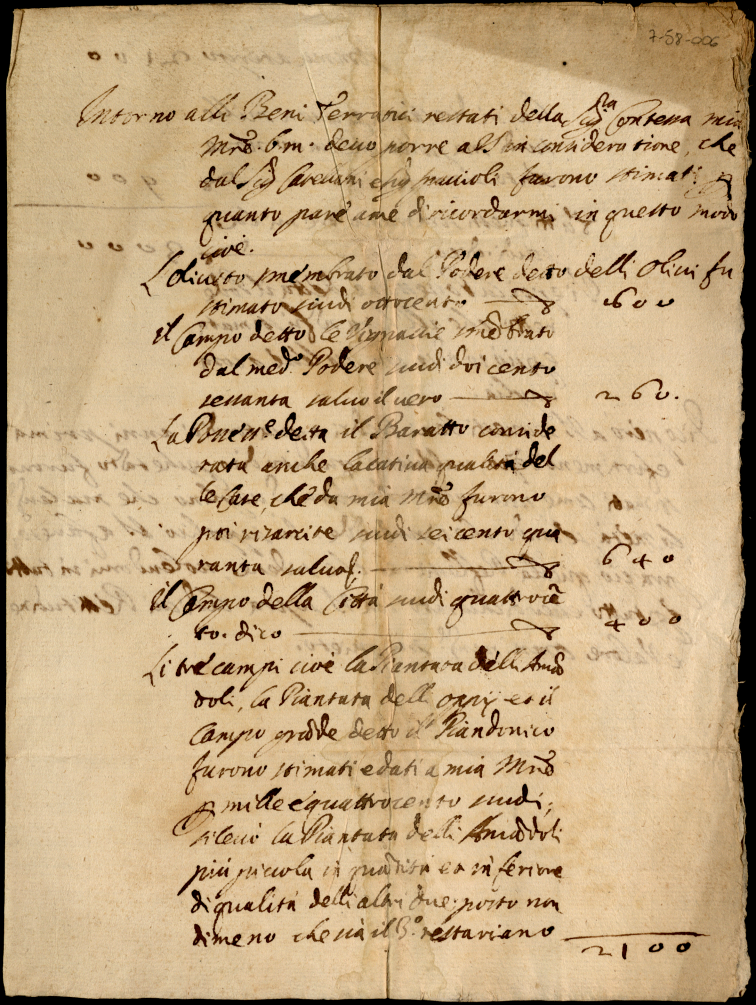 7-58-006
Intorno alli Beni Terratici restati della Sig.ra Contessa mia
M̃re b.m. devo porre alS in consideratione, che
dal Sig. e Sig. furono stimati p
quanto pare a me di ricordarmi in questo modo
cioè.
L'oliveto smembrato dal Podere detto delli Olivi fu
stimato scudi ottocento — 800
Il Campo detto le Vernacie smẽbrato
dal med.o Podere scudi doicento
sessanta salvo il vero — 260.
La Posses.ne detta il Baratto conside
rata anche la cativa qualità del
le Case, che da mia M̃re furono
poi risarcite scudi seicento qua
ranta salvo — 640
Il Campo della Città scudi quattrocẽ
to. dico — 400
Li tre campi cioè la Piantata delli Amã
doli, la Piantata delli oppij et il
Campo grãde detto il Piandonico
furono stimati e dati a mia M̃re
p mille e quattrocento scudi;
si levi la Piantata delli Amãdoli
più piccola in quãtità et inferiore
di qualità delli altri due, posto non
dimeno che sia il 3.o restariano
2100